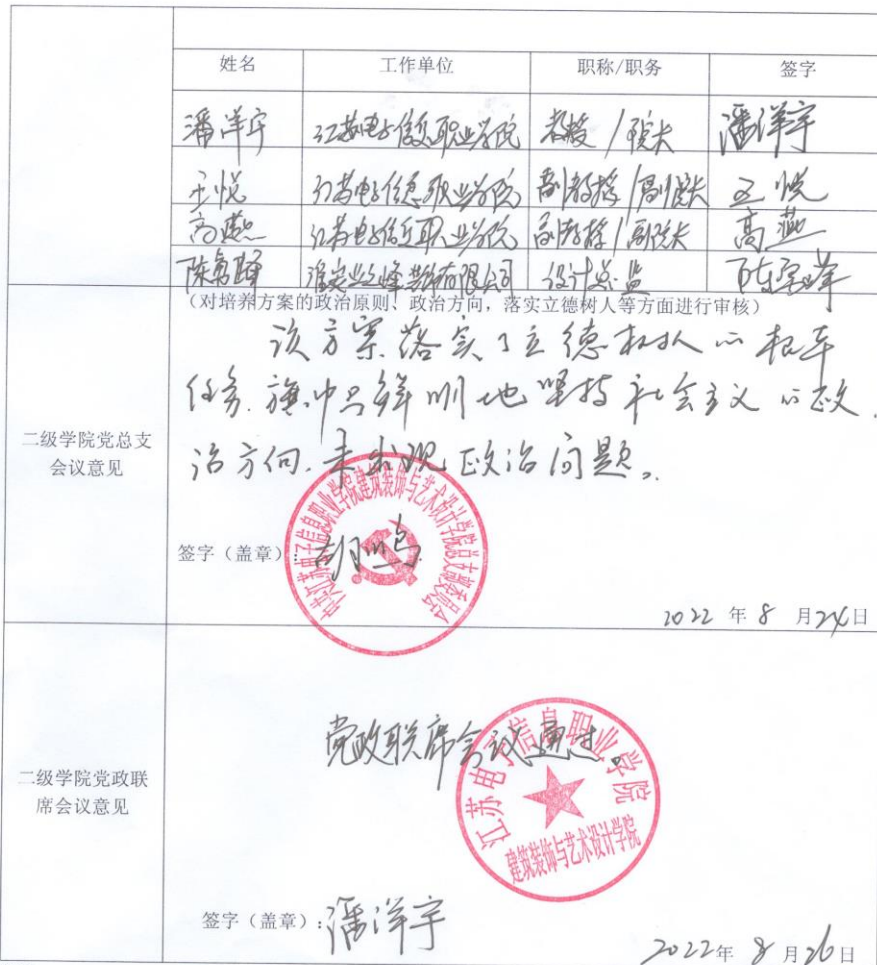 姓名 工作单位 职称/职务 签字
潘洋宇 江苏电子信息职业学院 教授/院长 潘洋宇
王悦 江苏电子信息职业学院 副教授/副院长 王悦
高燕 江苏电子信息职业学院 副教授/副院长 高燕
设计总监
(对培养方案的政治原则、政治方向,落实立德树人等方面进行审核)
二级学院党总支
会议意见
该方案落实了立德树人的根本
任务.旗帜鲜明地坚持社会主义的政
治方向.未出现政治问题。
签字(盖章):
中共江苏电子信息职业学院建筑装饰与艺术设计学院总支部委员会
2022 年 8 月 24 日
二级学院党政联
席会议意见
党政联席会议通过。
江苏电子信息职业学院
建筑装饰与艺术设计学院
签字(盖章):潘洋宇
2022年 8 月 26 日